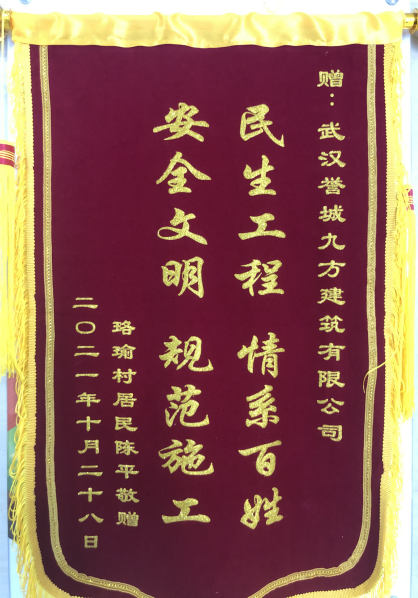 赠：武汉誉城九方建筑有限公司
民生工程 情系百姓
安全文明 规范施工
珞瑜村居民陈平敬赠
二〇二一年十月二十八日